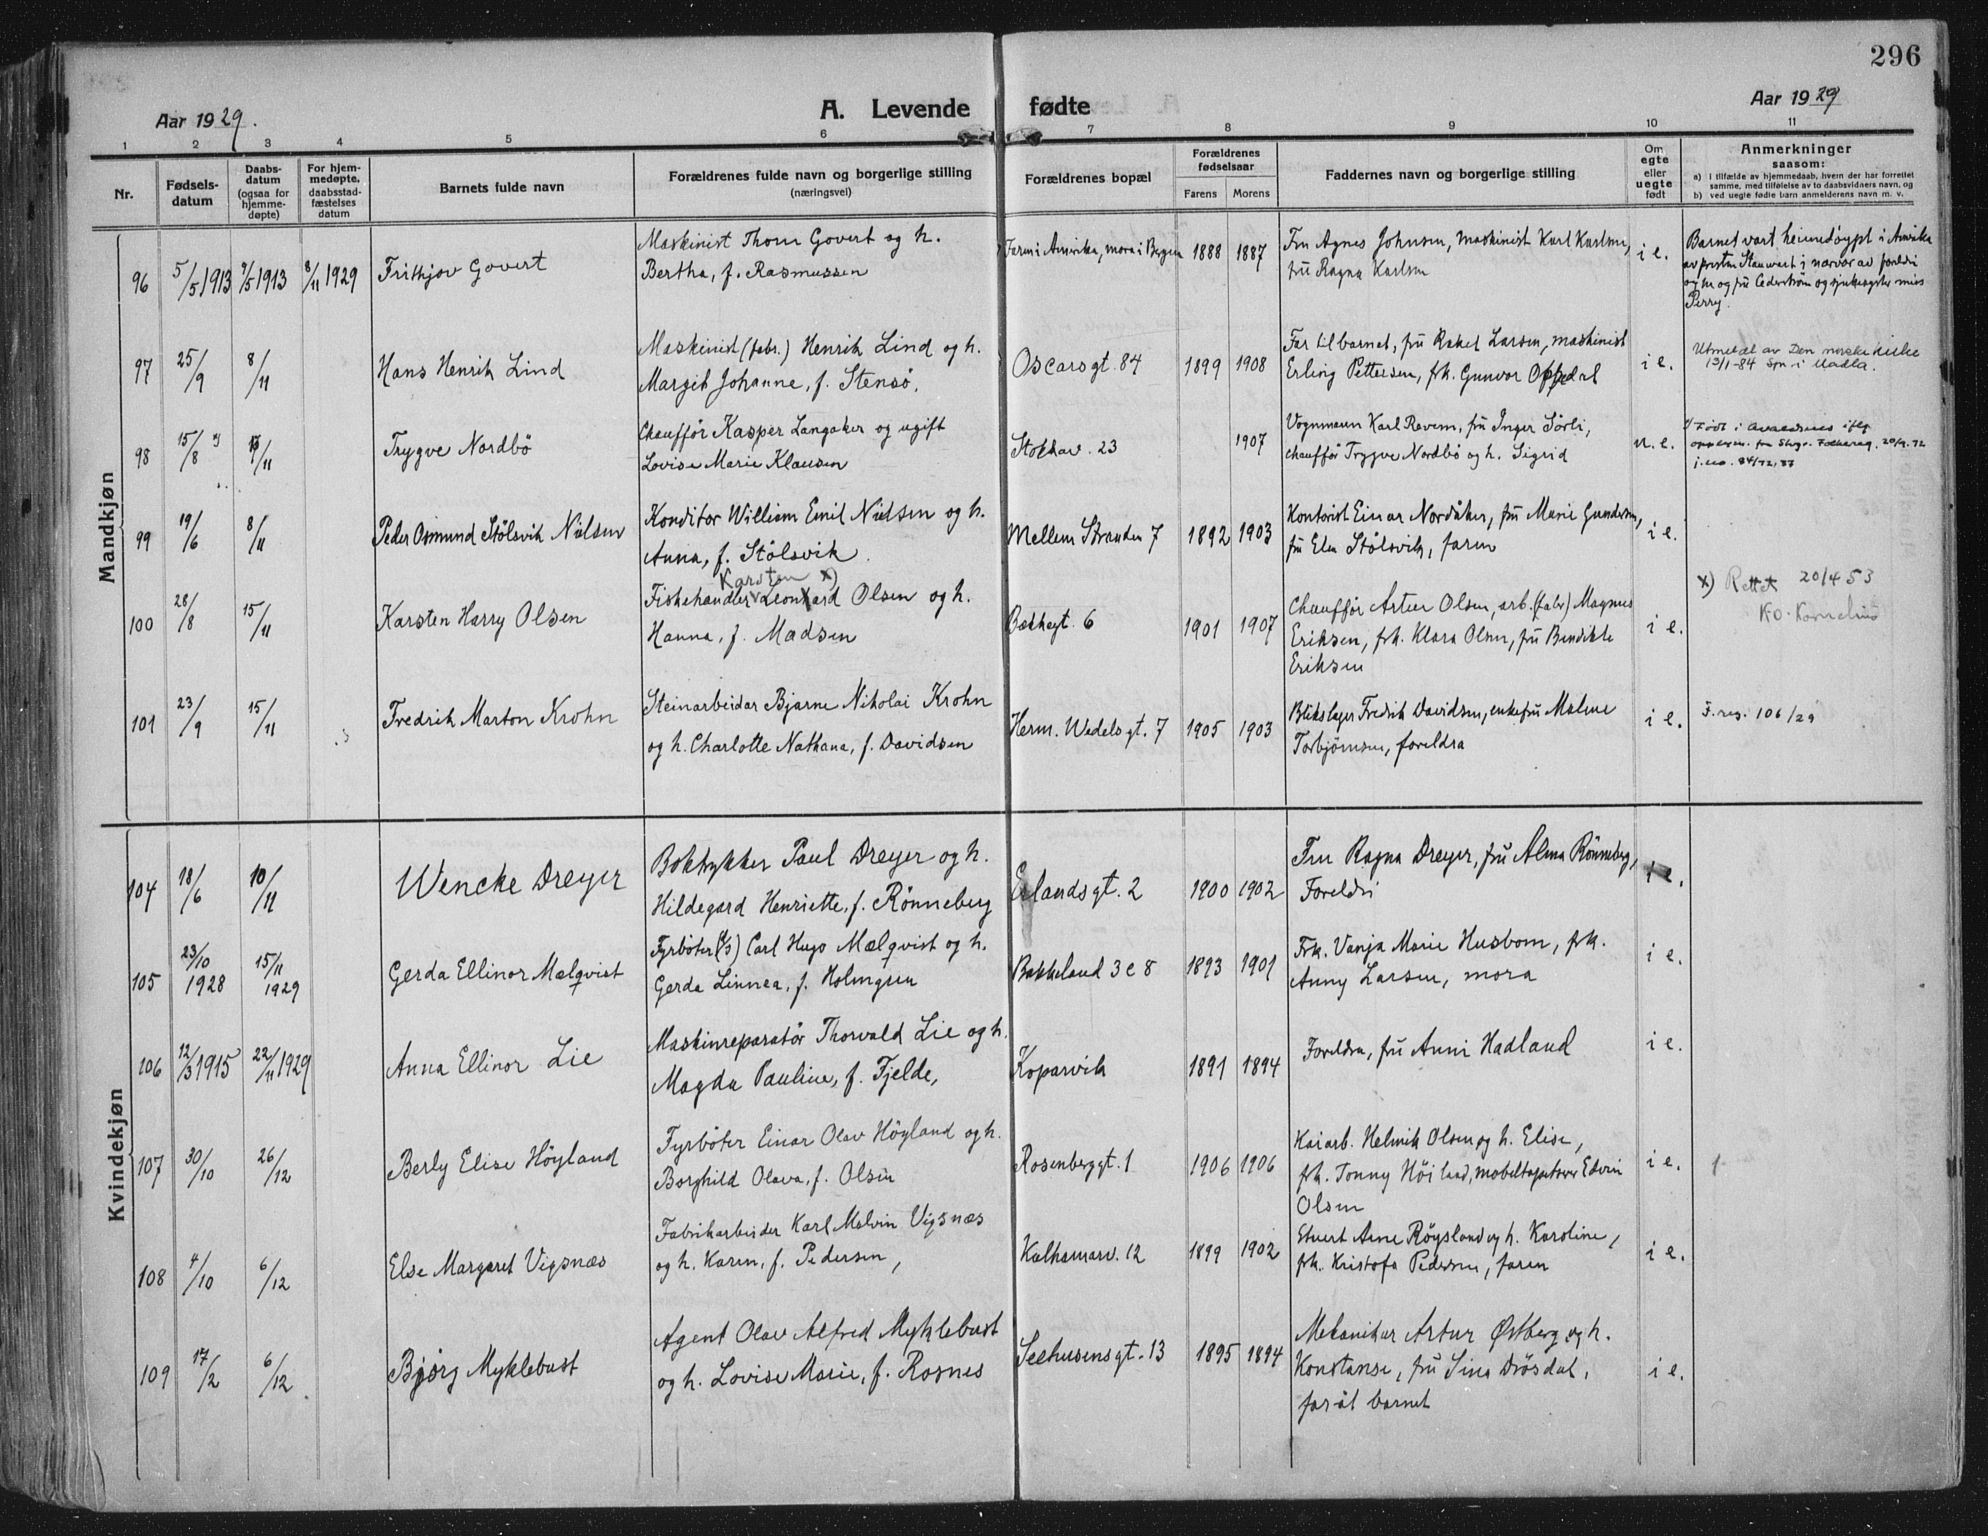 296
Aar 1929.
A. Levende fødte
Aar 1929
1 2 3 4 5 6 7 8 9 10 11
Nr.
Fødsels-
datum
Daabs-
datum
(ogsaa for
hjemme-
døpte)
For hjem-
medøpte,
daabsstad-
fæstelses
datum
Barnets fulde navn
Forældrenes fulde navn og borgerlige stilling
(næringsvei)
Forældrenes bopæl
Forældrenes
fødselsaar
Farens Morens
Faddernes navn og borgerlige stilling
Om
egte
eller
uegte
født
Anmerkninger
saasom:
a) I tilfælde av hjemmedaab, hvem der har forrettet
samme, med tilføielse av to daabsvidners navn, og
b) ved uegte fødte barn anmelderens navn m. v.
Mandkjøn
96
5/5 1913
7/5 1913
8/11 1929
Frithjov Govert
Maskinist Thom Govert og h.
Bertha, f. Rasmussen
Faren i Amerika, mora i Bergen
1888 1887
Fru Agnes Johnsen, maskinist Karl Karlsen,
frú Ragna Karlsen
i e.
Barnet vart heimedøypt i Amerika
av presten Stauwert i nærvær av foreldri
og hr og frú Cederstrøm og sjukesyster miss
Perry.
97
25/9
8/11
Hans Henrik Lind
Maskinist (fabr.) Henrik Lind og h.
Margit Johanne, f. Stensö.
Oscarsgt. 84
1899 1908
Far til barnet, frú Rakel Larsen, maskinist
Erling Pettersen, frk. Gunvor Oppedal
i e.
Utmeldt av Den norske kirke
13/1-84 Spr. i Madla.
98
15/8
/11
Trygve Nordbö
Chaufför Kasper Langaker og ugift
Lovise Marie Klausen
Stokkav. 23
1907
Vognmann Karl Revem, frú Inger Sörli,
chaufför Trygve Nordbö og h. Sigrid
u. e.
Født i Avaldsnes iflg
fra Stvgr. Folkereg. 20/9.72
j.no. 84/72, 87
99
19/6
8/11
Peder Osmund Stölsvik Nielsen
Konditor William Emil Nielsen og h.
Anna, f. Stölsvik.
Mellem Stranden 7
1892 1903
Kontorist Einar Nordåker, frú Marie Gundersen,
frú Elen Stölsvik, faren
i e.
100
28/8
15/11
Karsten Harry Olsen
Karsten x)
Fiskehandler Leonhard Olsen og h.
Hanna, f. Madsen
Bakkegt. 6
1901 1907
Chauffør Artur Olsen, arb. (fabr) Magnus
Eriksen, frk. Klara Olsen, frú Bendikte
Eriksen
i e.
x) Rettet 20/4 53
KO. Kornelius
101
23/9
15/11
Fredrik Marton Krohn
Steinarbeidar Bjarne Nikolai Krohn
og h. Charlotte Nathana, f. Davidsen
Herm. Wedelsgt. 7
1905 1903
Blikslager Fredrik Davidsen, enkefrú Malene
Torbjörnsen, foreldra
i e.
F. reg. 106/29
Kvindekjøn
104
18/6
10/11
Wencke Dreyer
Boktrykker Paul Dreyer og h.
Hildegard Henriette, f. Rönneberg
Erlandsgt. 2
1900 1902
Fru Ragna Dreyer, frú Alma Rönneberg,
Foreldri
i e.
105
23/10
1928
15/11
1929
Gerda Ellinor Malqvist
Fyrböter (d/s) Carl Hugo Malqvist og h.
Gerda Linnea, f. Holmgren
Bakkeland 3 e 8
1893 1901
Frk. Vanja Marie Husbom, frk.
Anny Larsen, mora
i e.
106
12/3 1915
22/11 1929
Anna Ellinor Lie
Maskinreparatör Thorvald Lie og h.
Magda Pauline, f. Fjelde,
Koparvik
1891 1894
Foreldra, frú Anni Hadland
i e.
107
30/10
26/12
Berly Elise Höyland
Fyrböter Einar Olav Höyland og h.
Borghild Olava, f. Olsen
Rosenberggt. 1
1906 1906
Kaiarb. Helmik Olsen og h. Elise,
frk. Tonny Höiland, møbeltapetserer Edvin
Olsen
i e.
108
4/10
6/12
Else Margaret Vigsnæs
Fabrikarbeider Karl Melvin Vigsnæs
og h. Karen, f. Pedersen,
Kalhamarv. 12
1899 1902
Stuert Arne Röysland og h. Karoline,
frk. Kristofa Pedersen, faren
i e.
109
17/2
6/12
Bjørg Myklebust
Agent Olav Alfred Myklebust
og h. Lovise Marie, f. Rosnes
Seehusensgt. 13
1895 1894
Mekaniker Artur Østberg og h.
Konstanse, frú Sina Drösdal,
far åt barnet
i e.